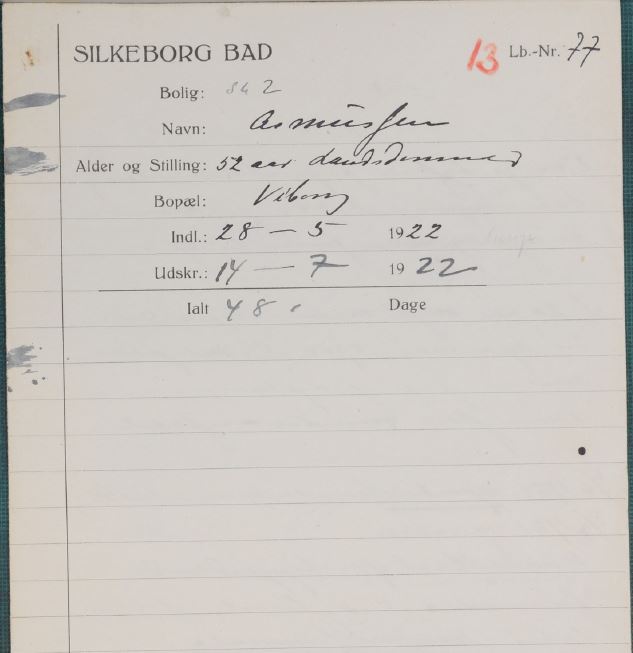 SILKEBORG BAD 13 Lb.-Nr. 77
Bolig: 2
Navn: Asmussen
Alder og Stilling: 52 aar Landsdommer
Bopæl: Viborg
Indl.: 28 — 5 1922
Udskr.: 14 — 7 1922
Ialt 48 Dage